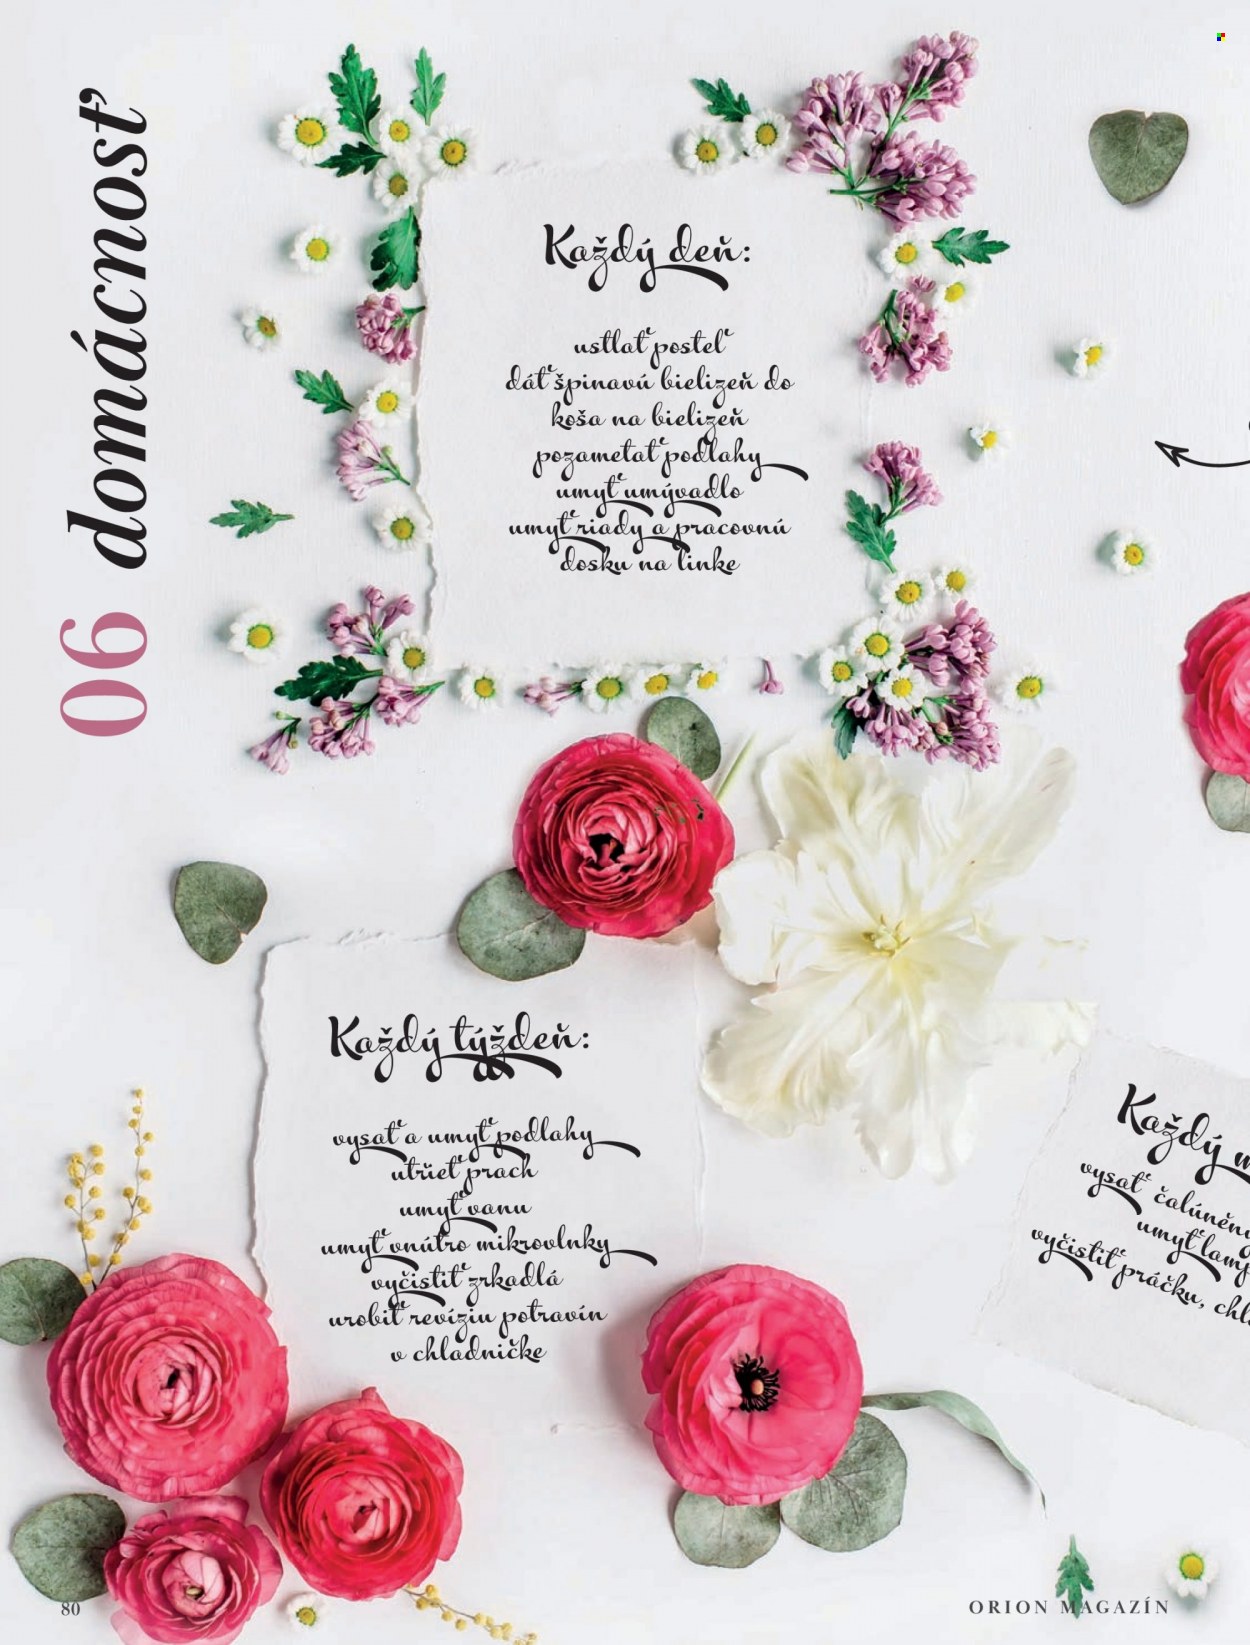 06 domácnosť
Každý deň:
ustlať posteľ
dáť špinavú bielizeň do
koša na bielizeň
pozametať podlahy
umyť umývadlo
umyť riady a pracovnú
dosku na linke
Každý týždeň:
vysať a umyť podlahy
utrieť prach
umyť vanu
umyť vnútro mikrovlnky
vyčistiť zrkadlá
urobiť revíziu potravín
v chladničke
Každý m
vysať čalúnén
umyť lamp
vyčistiť práčku, chl
80
ORION MAGAZÍN